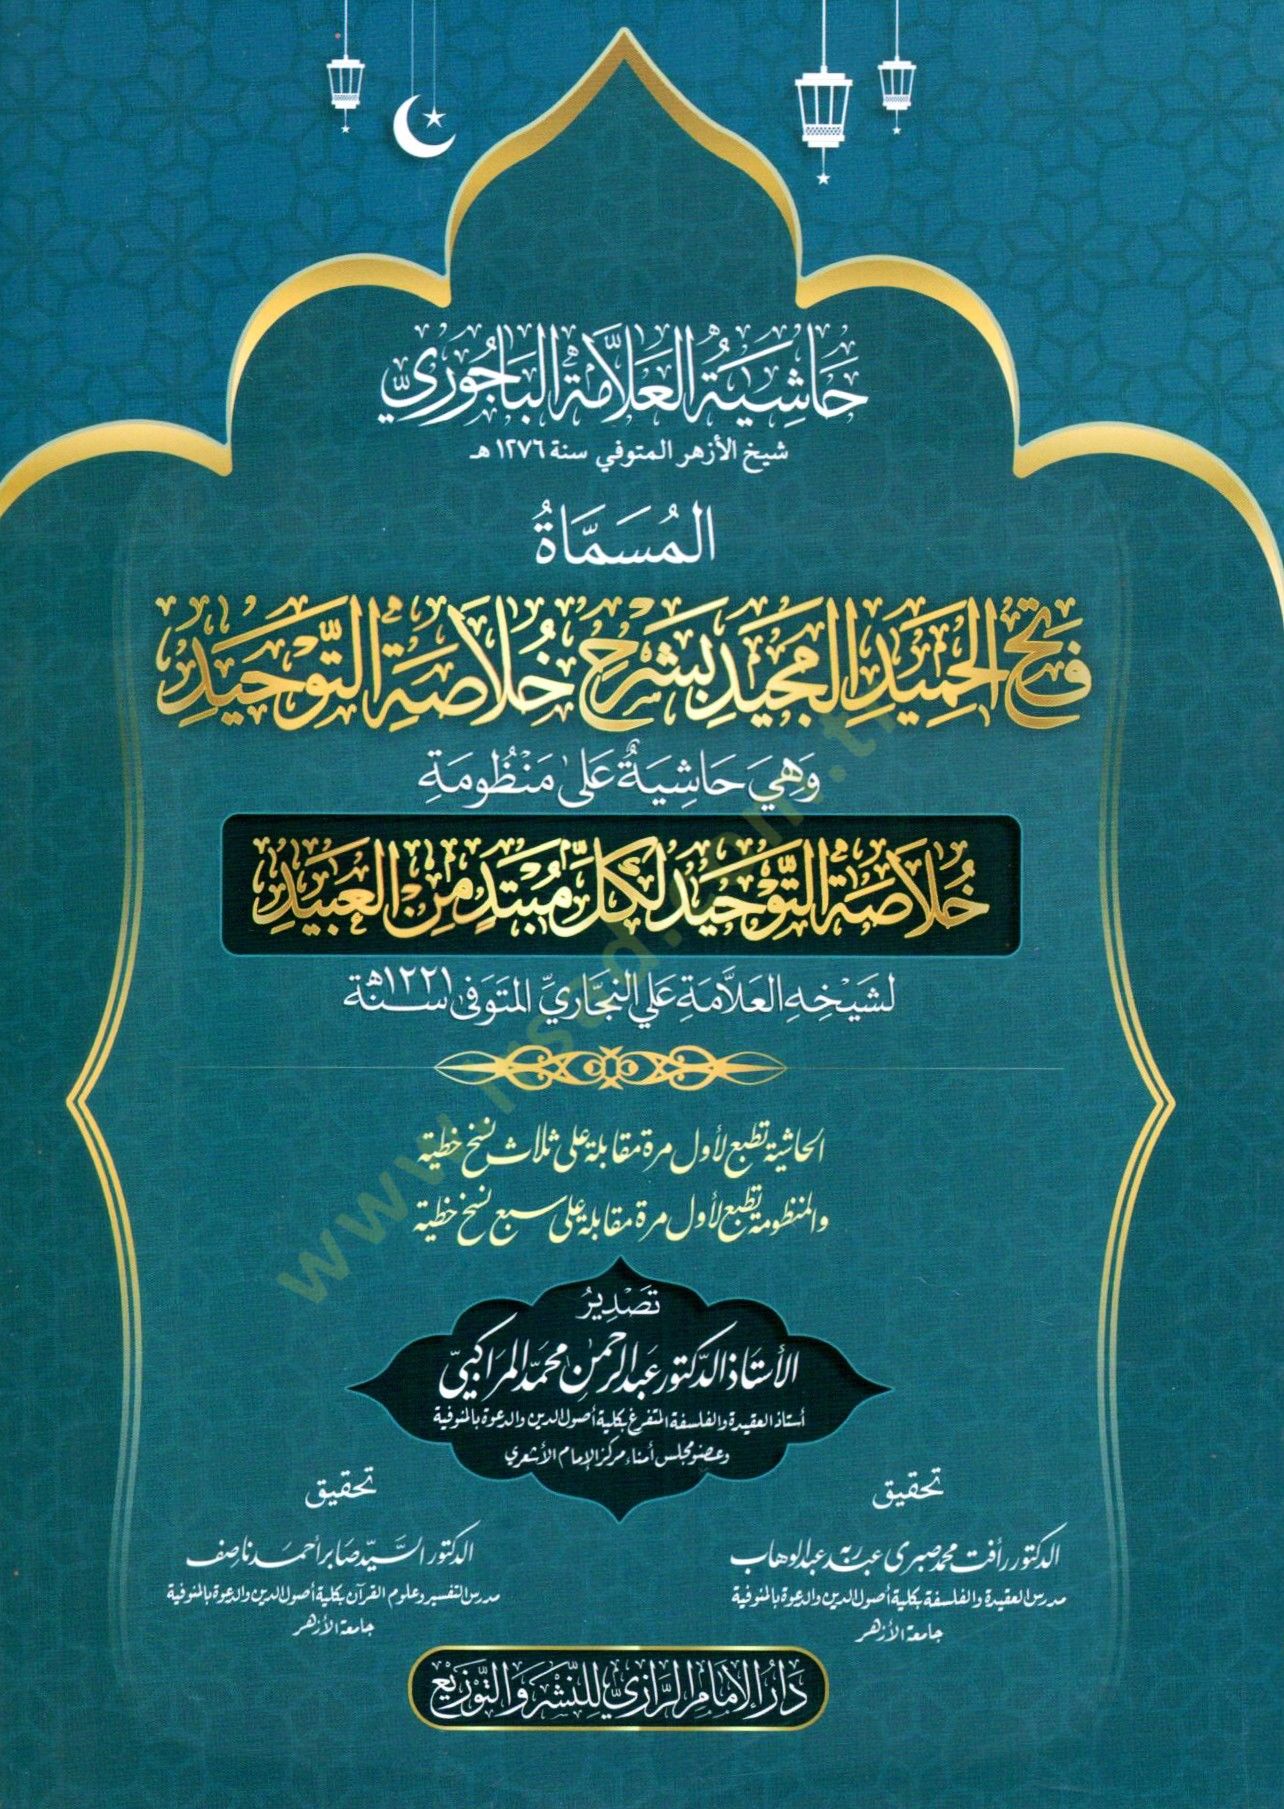 حَاشِيَةُ العَلَّامَةِ البَاجُورِيِّ
شيخ الأزهر المتوفي سنة ١٢٧٦ هـ
المُسَمَّاةُ
فَتْحُ الحَمِيدِ المَجِيدِ بِشَرْحِ خُلَاصَةِ التَّوْحِيدِ
وَهِيَ حَاشِيَةٌ عَلَى مَنْظُومَةِ
خُلَاصَةُ التَّوْحِيدِ لِكُلِّ مُبْتَدٍ مِنَ العَبِيدِ
لشَيْخِهِ العَلَّامَةِ عَلي النجَّاريِّ المتَوَفى سنة ١٢٢١هـ
الحاشية تطبع لأول مرة مقابلة على ثلاث نسخ خطية
والمنظومة تطبع لأول مرة مقابلة على سبع نسخ خطية
تَصْدِيرُ
الأستاذ الدكتور عبد الرحمن محمد المراكبي
أستاذ العقيدة والفلسفة المتفرغ بكلية أصول الدين والدعوة بالمنوفية
وعضو مجلس أمناء مركز الإمام الأشعري
تحقيق
الدكتور رأفت محمد صبري عبد ربه عبد الوهاب
مدرس العقيدة والفلسفة بكلية أصول الدين والدعوة بالمنوفية
جامعة الأزهر
تحقيق
الدكتور السيد صابر أحمد ناصف
مدرس التفسير وعلوم القرآن بكلية أصول الدين والدعوة بالمنوفية
جامعة الأزهر
دَارُ الإمَامِ الرَّازِيِّ لِلنَّشْرِ وَالتَّوْزِيعِ